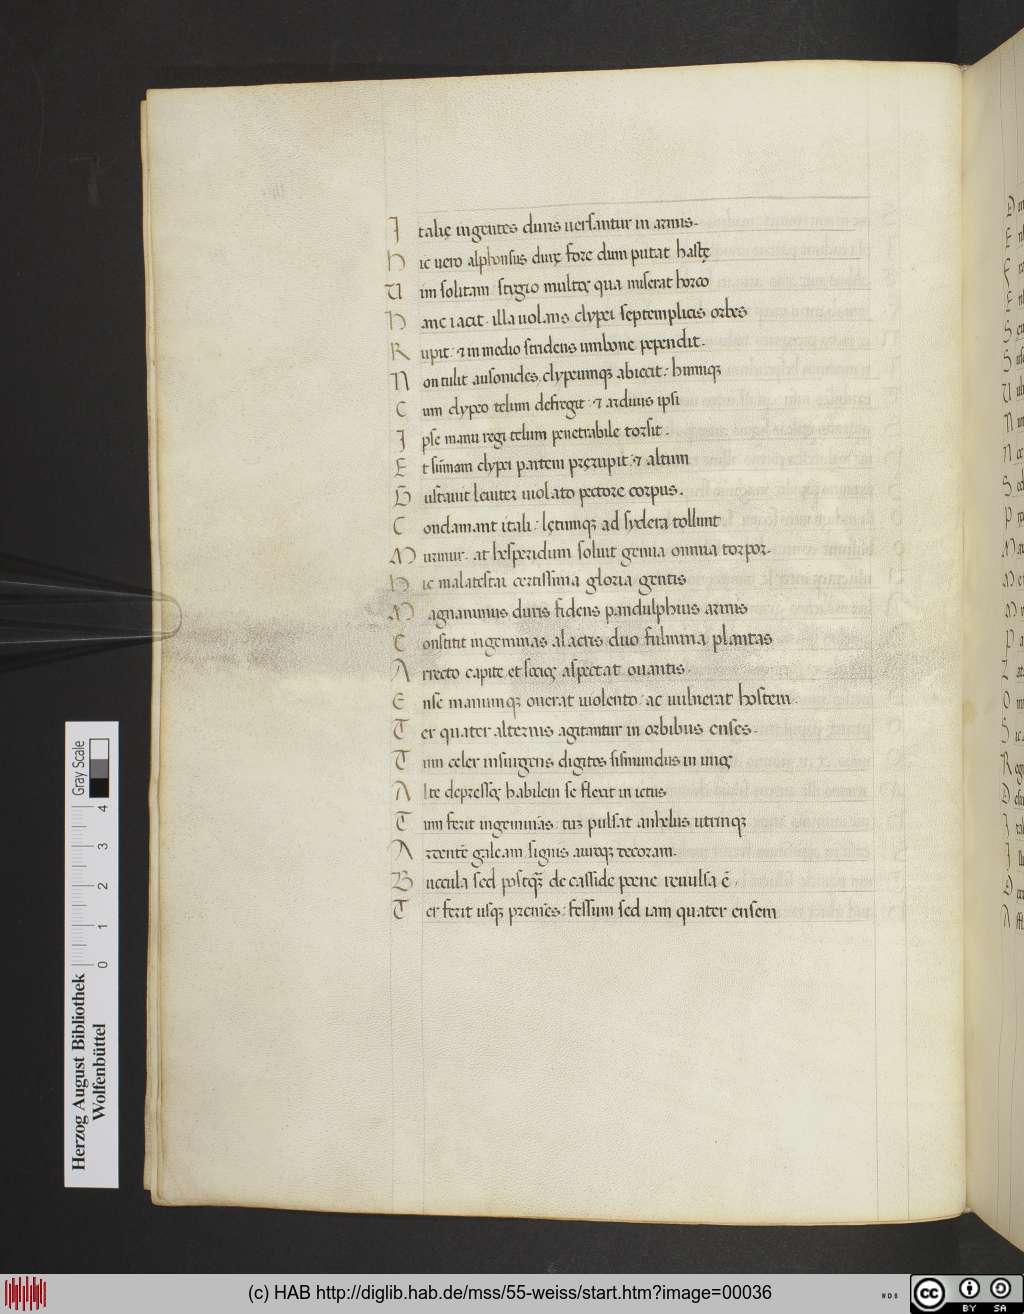 Italię ingentes duris uersantur in armis.
Hic uero alphonsus dirę fore dum putat hastę
Vim solitam stygio multos qua miserat horco
Hanc iacit. illa uolans clypei septemplicis orbes
Rupit: & in medio stridens umbone pependit.
Non tulit ausonides, clypeumqꝫ abiecit: humiqꝫ
Cum clypeo telum defregit: & arduus ipsi
Ipse manu regi telum penetrabile torsit.
Et sūmam clypei partem pręrupit: & altum
Gustauit leuiter uiolato pectore corpus.
Conclamant itali: lętumqꝫ ad sydera tollunt
Murmur. at hesperidum soluit genua omnia torpor.
Hic malatestae certissima gloria gentis
Magnanimus duris fidens pandulphius armis
Constitit ingeminas alacris duo fulmina plantas
Arrecto capite et socios aspectat ouantis.
Ense manumqꝫ onerat uiolento: ac uulnerat hostem.
Ter quater alternis agitantur in orbibus enses.
Tum celer insurgens digitos sismundus in imos
Alte depressos habilem se flexit in ictus
Tum ferit ingeminās: tū pulsat anhelus utrinqꝫ
Ardentē galeam signis auroqꝫ decoram.
Buccula sed postqꝫ̄ de casside poene reuulsa ē.
Ter ferit usqꝫ premēs: fessum sed iam quater ensem
Herzog August Bibliothek
Wolfenbüttel
Gray Scale
0 1 2 3 4
(c) HAB http://diglib.hab.de/mss/55-weiss/start.htm?image=00036
WDB
cc BY SA